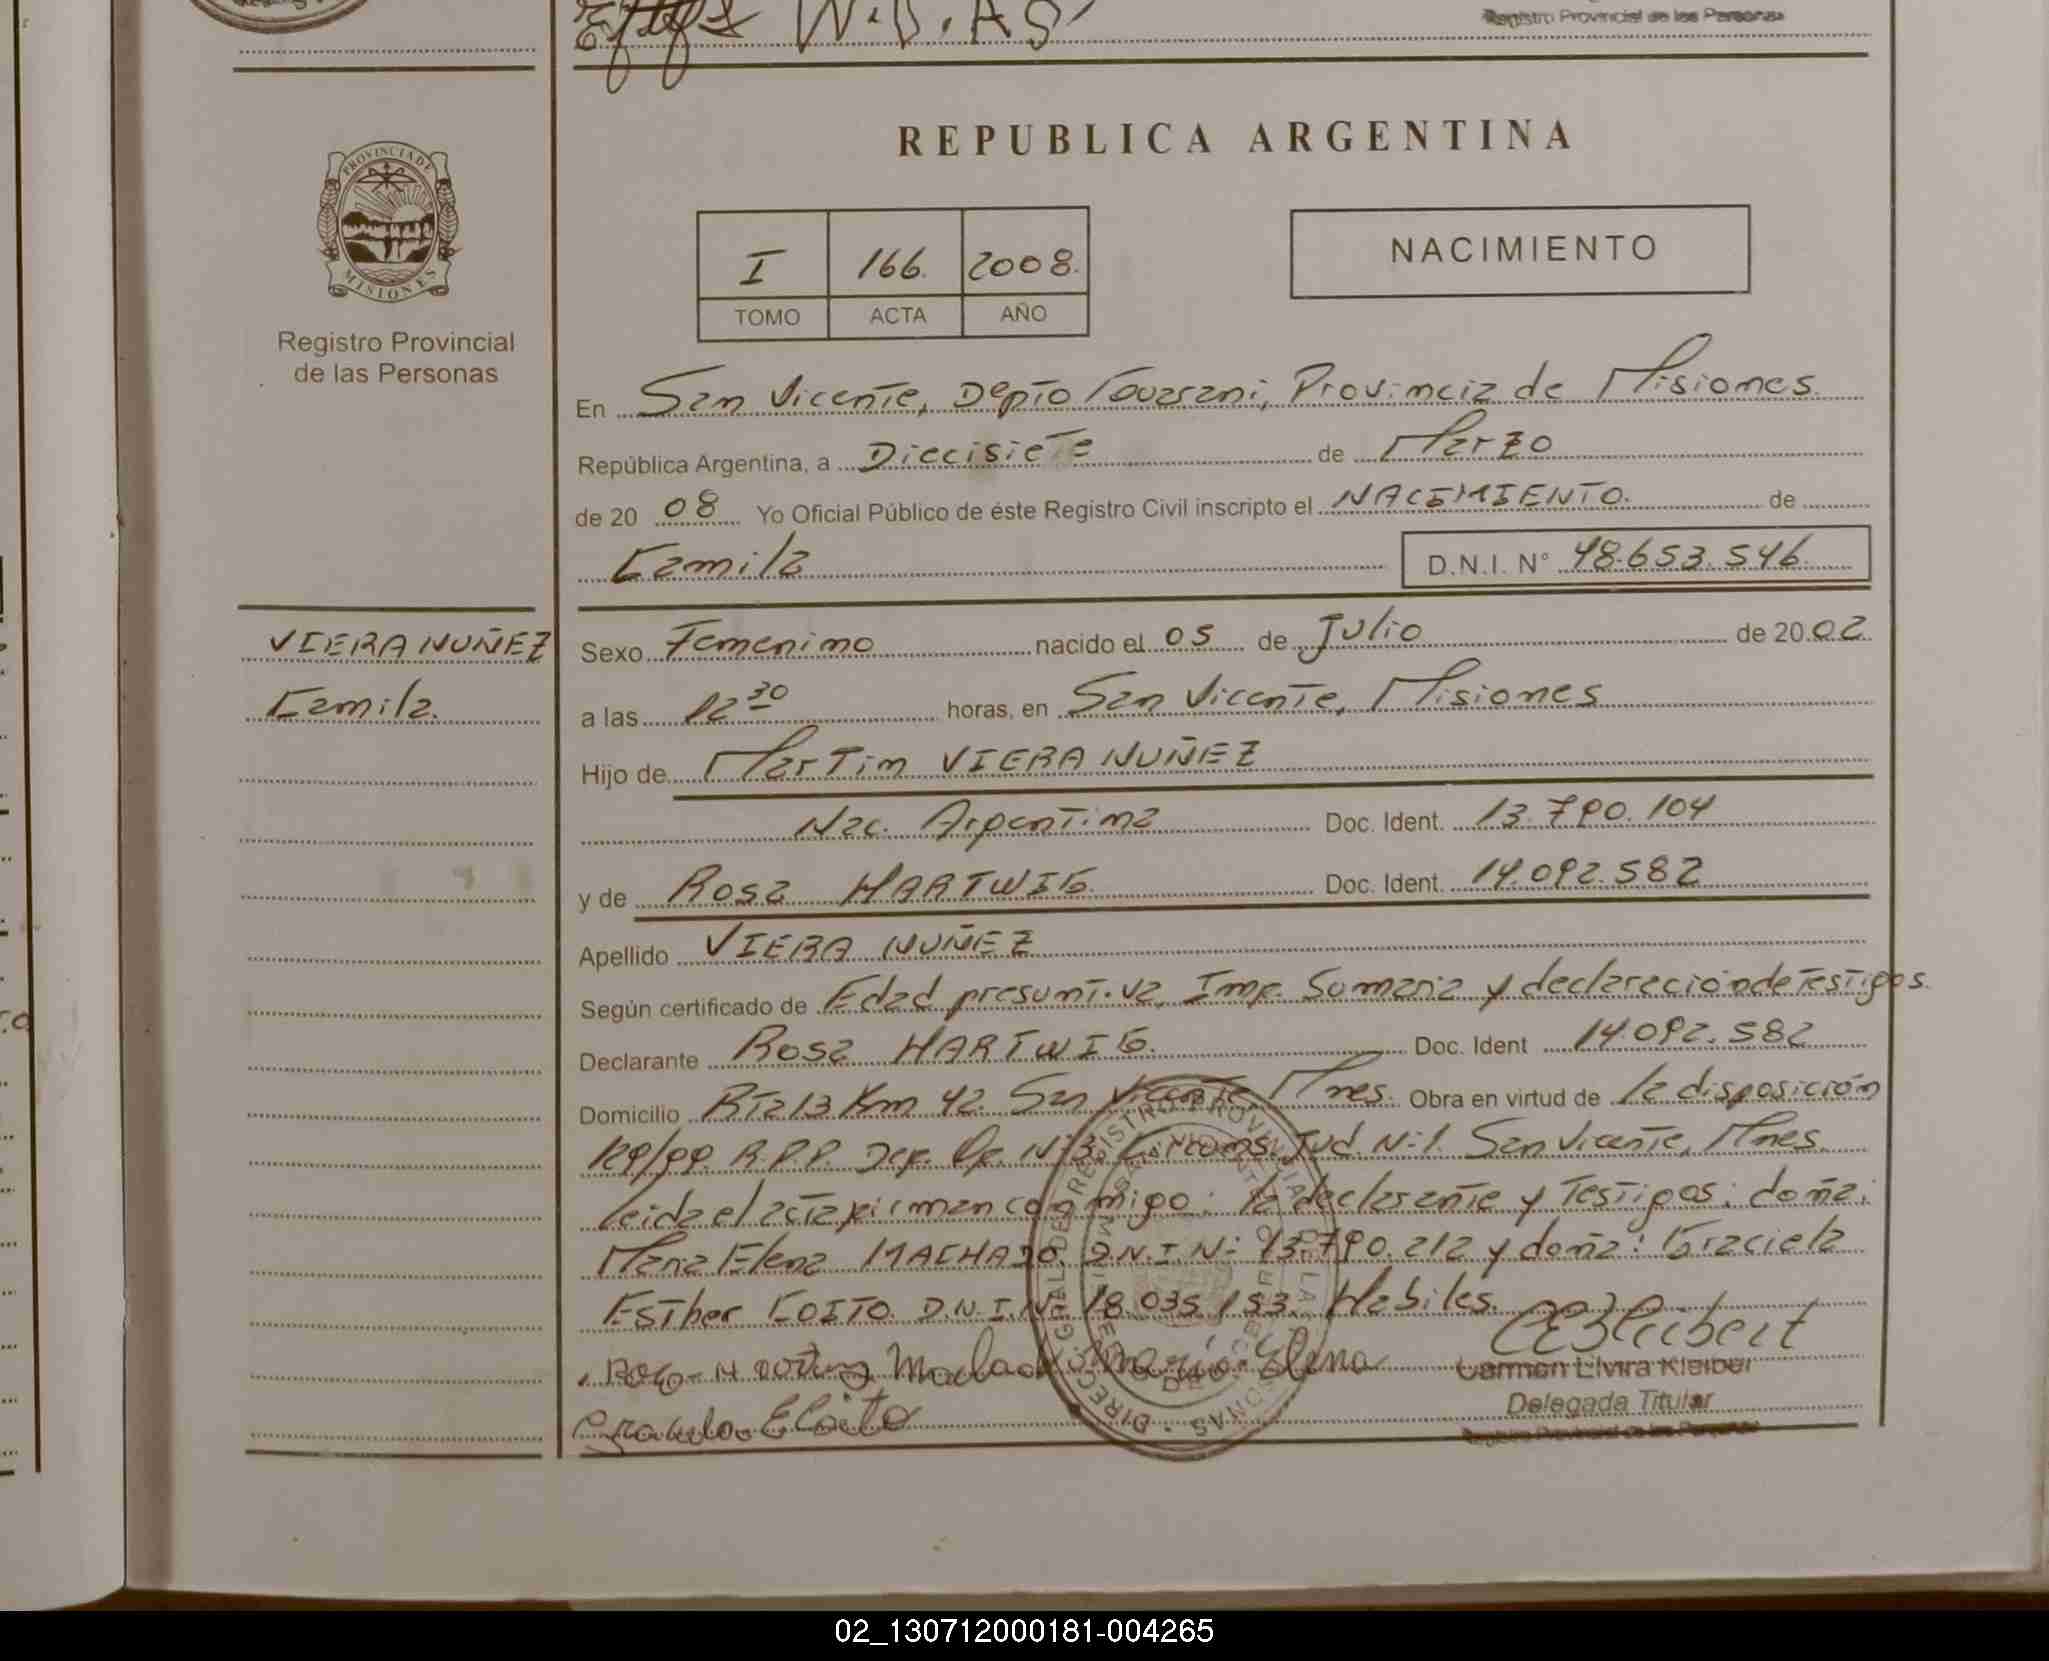 W.D.AS
Registro Provincial de las Personas
PROVINCIA DE
MISIONES
Registro Provincial
de las Personas
REPUBLICA ARGENTINA
I 166. 2008.
TOMO ACTA AÑO
NACIMIENTO
En San Vicente, Depto Guarani, Provincia de Misiones
República Argentina, a Diecisiete de Marzo
de 20 08 Yo Oficial Público de éste Registro Civil inscripto el NACIMIENTO. de
Camila D.N.I. N° 48.653.546.
VIERA NUÑEZ
Camila.
Sexo Femenino nacido el 05 de Julio de 20 02
a las 12 30 horas, en San Vicente, Misiones
Hijo de Martin VIERA NUÑEZ
Nac. Argentina Doc. Ident. 13.790.104
y de Rosa HARTWIG. Doc. Ident. 14.092.582
Apellido VIERA NUÑEZ
Según certificado de Edad presuntiva, Imp. Sumaria y declaración de Testigos.
Declarante Rosa HARTWIG. Doc. Ident 14.092.582
Domicilio Rta 13 Km 42. San Vicente Mnes. Obra en virtud de la disposición
129/99. R.P.P. Def. Of. N:3. Circuns. Jud. N:1. San Vicente, Mnes.
leida el acta firman conmigo: la declarante y Testigos: doña:
Maria Elena MACHADO. D.N.I. N: 13.790.212 y doña: Graciela
Esther COITO. D.N.I. N: 18.035.153. Habiles.
Machado Maria Elena
Carmen Elvira Kleiber
Delegada Titular
Registro Provincial de las Personas
02_130712000181-004265